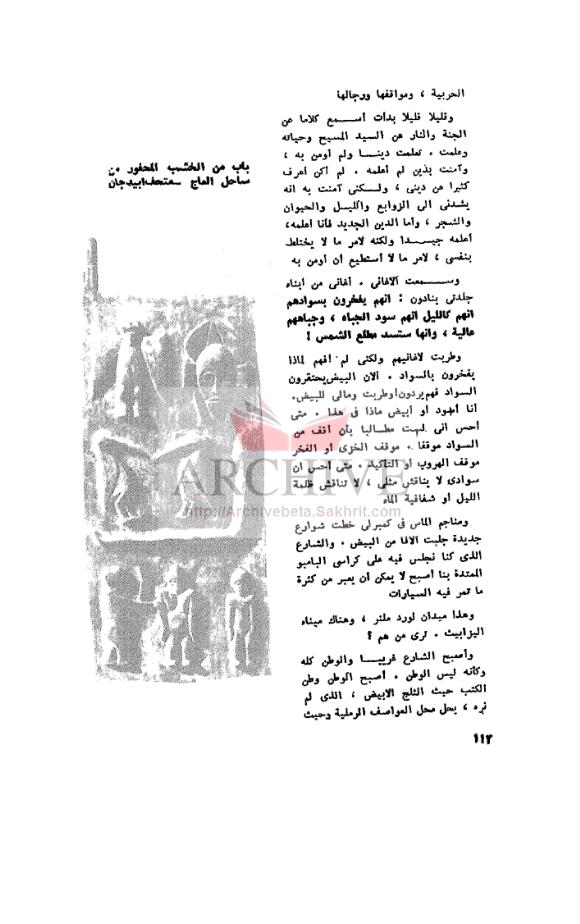 الحربية ، ومواقفها ورجالها
وقليلا قليلا بدأت أسمع كلاما عن
الجنة والنار عن السيد المسيح وحياته
وعلمت . تعلمت دينا ولم أومن به ،
وآمنت بدين لم أعلمه . لم أكن أعرف
كثيرا عن دينى ، ولكنى آمنت به انه
يشدنى الى الزوابع والليل والحيوان
والشجر ، وأما الدين الجديد فأنا أعلمه،
أعلمه جيدا ولكنه لأمر ما لا يختلط
بنفسى ، لأمر ما لا أستطيع أن أومن به
وسمعت الأغانى . أغانى من أبناء
جلدتى ينادون : انهم يفخرون بسوادهم
انهم كالليل انهم سود الجباه ، وجباههم
عالية ، وانها ستسد مطلع الشمس !
وطربت لأغانيهم ولكنى لم أفهم لماذا
يفخرون بالسواد . ألأن البيض يحتقرون
السواد فهم يردون أو طربت ومالى للبيض.
أنا أسود أو أبيض ماذا فى هذا . متى
أحس أنى لست مطالبا بأن أقف من
السواد موقفا . موقف الخزى أو الفخر
موقف الهروب أو التأكيد . متى أحس أن
سوادى لا يناقش مثلى ، لا تناقش ظلمة
الليل أو شفافية الماء
ومناجم الماس فى كمبرلى خطت شوارع
جديدة جلبت آلافا من البيض . والشارع
الذى كنا نجلس فيه على كراسى البامبو
الممتدة بنا أصبح لا يمكن أن يعبر من كثرة
ما تمر فيه السيارات
وهذا ميدان لورد ملنر ، وهناك ميناء
اليزابيث . ترى من هم ؟
وأصبح الشارع غريبا والوطن كله
وكأنه ليس الوطن . أصبح الوطن وطن
الكتب حيث الثلج الأبيض ، الذى لم
نره ، يحل محل العواصف الرملية وحيث
باب من الخشب المحفور من
ساحل العاج - متحف ابيدجان
ARCHIVE
http://Archivebeta.Sakhrit.com
١١٣